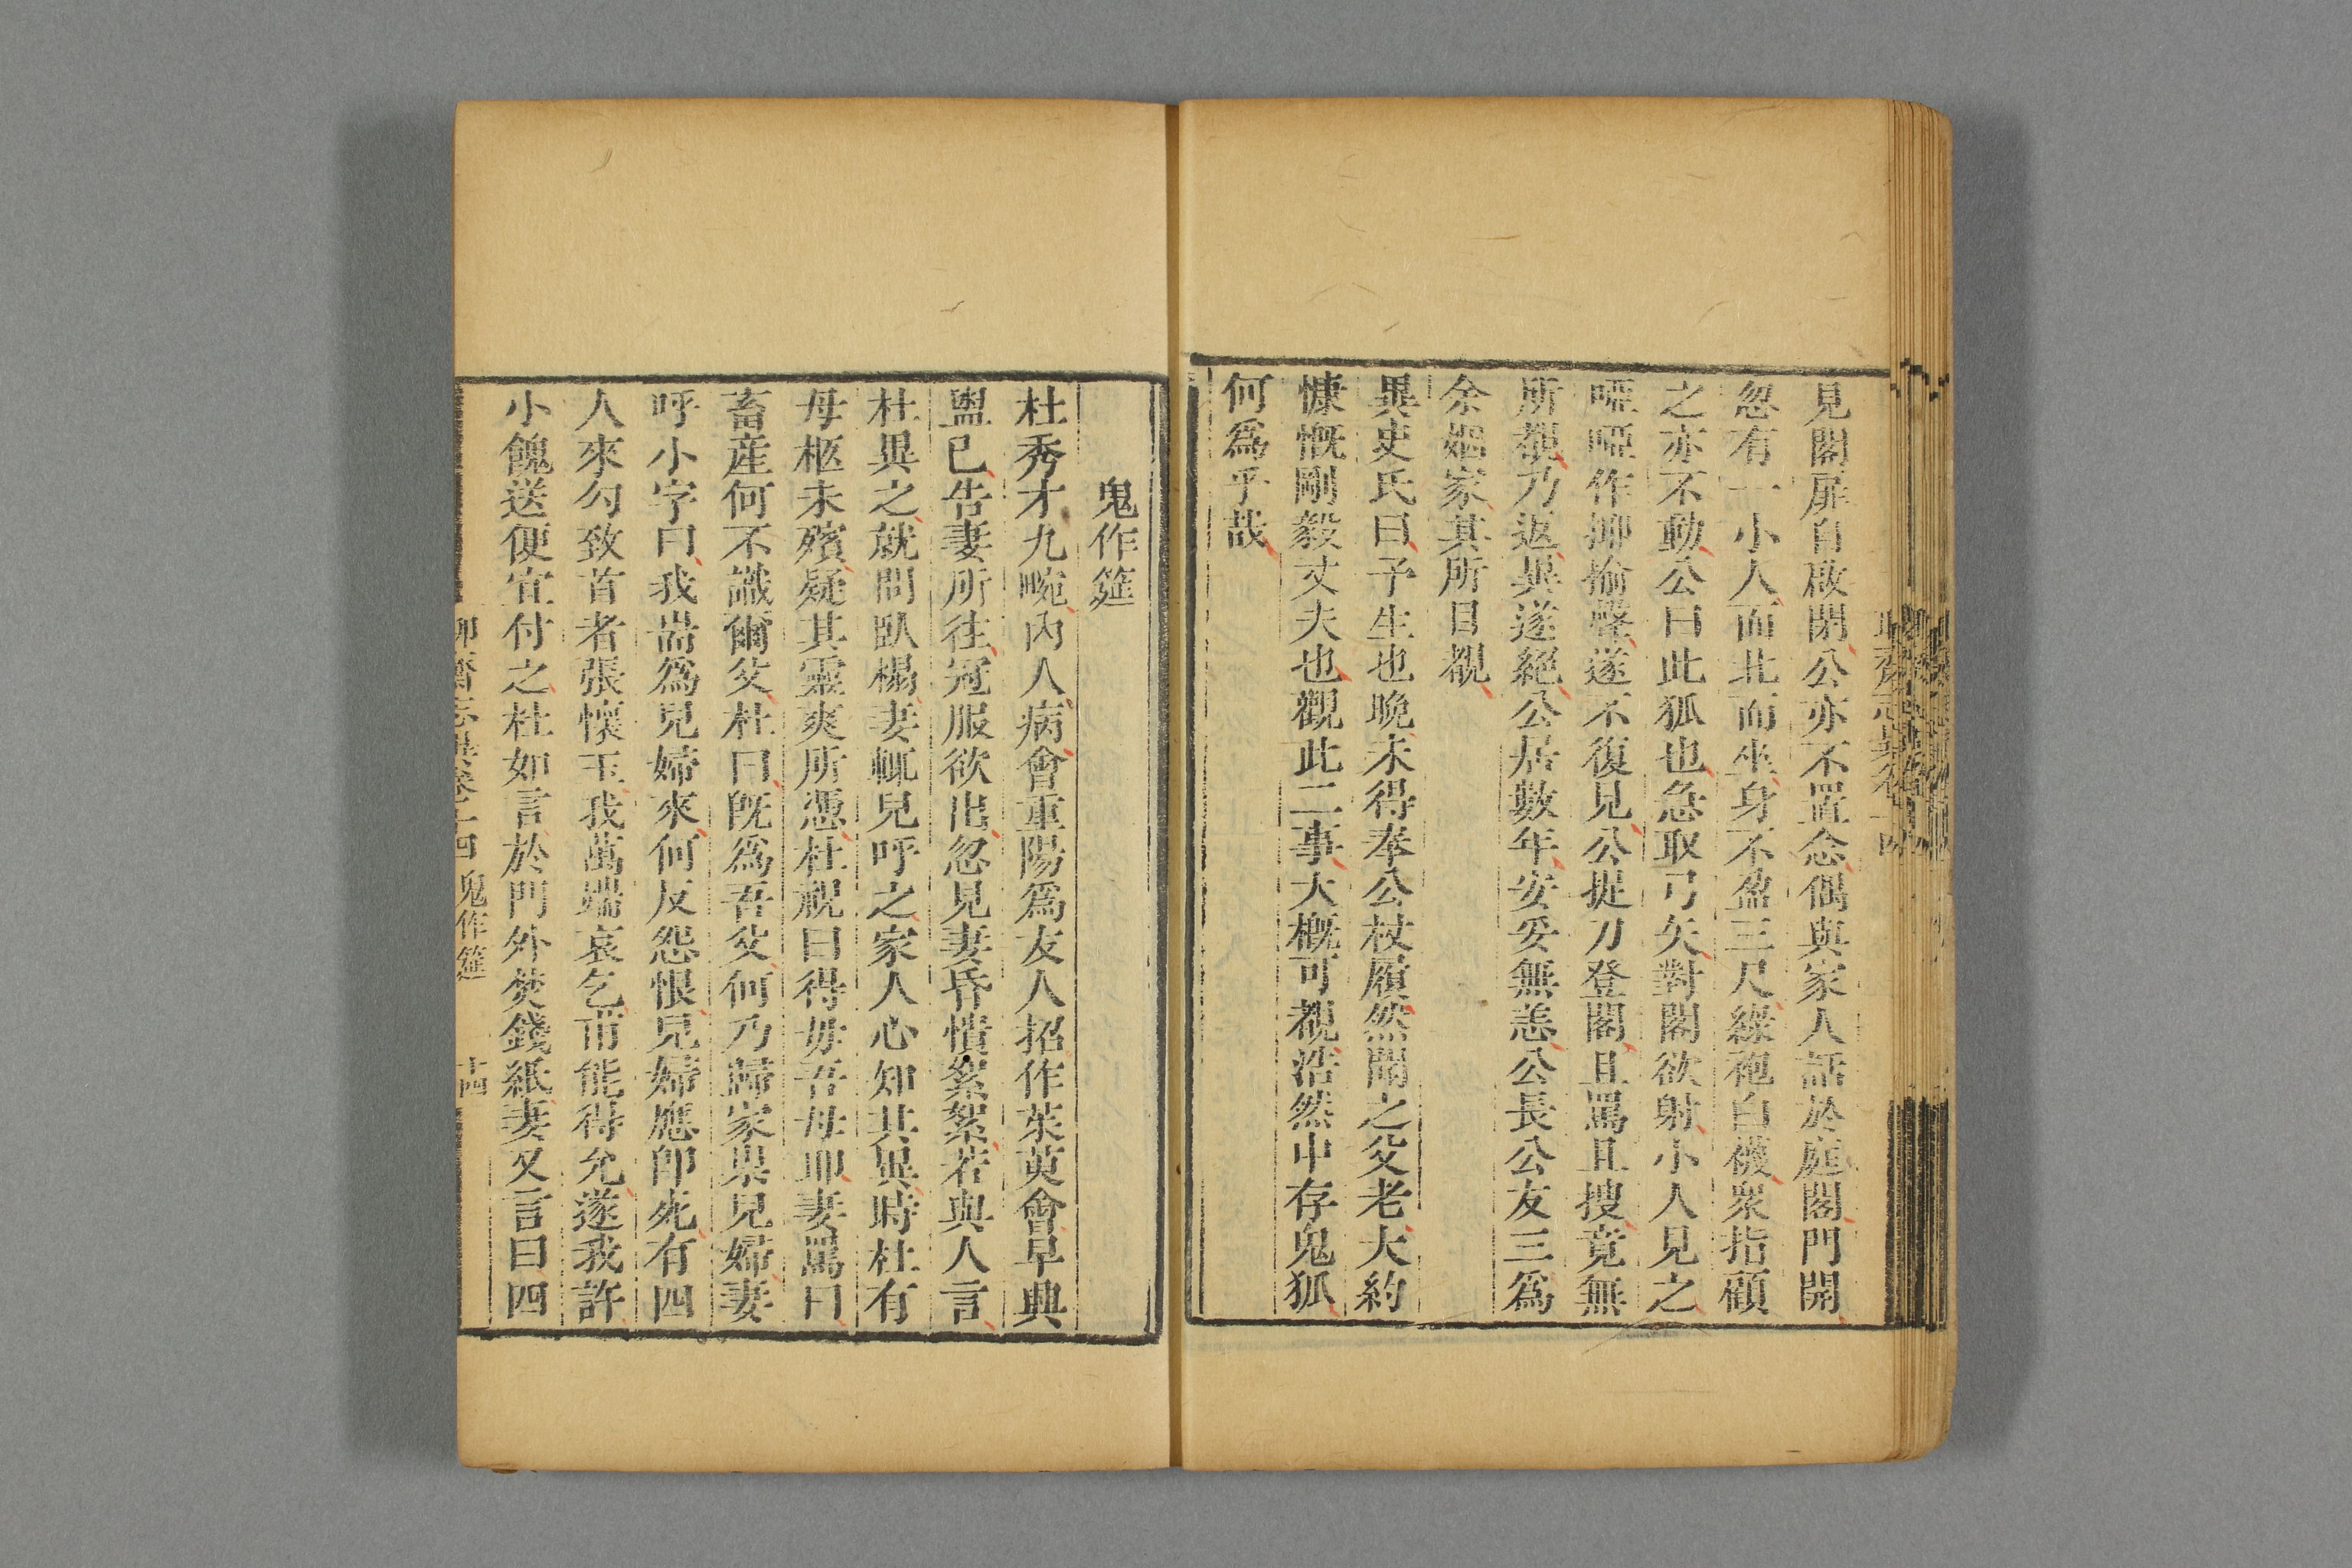 見閣扉自啟閉公亦不置念偶與家人話於庭閣門開
忽有一小人面北而坐身不盈三尺綠袍白襪衆指顧
之亦不動公曰此狐也急取弓矢對閣欲射小人見之
啞啞作揶揄聲遂不復見公提刀登閣且罵且搜竟無
所覩乃返異遂絕公居數年安妥無恙公長公友三爲
余姻家其所目覩
異史氏曰予生也晚未得奉公杖履然聞之父老大約
慷慨剛毅丈夫也觀此二事大槪可覩浩然中存鬼狐
何爲乎哉
鬼作筵
杜秀才九畹內人病會重陽爲友人招作茱萸會早興
盥已告妻所往冠服欲出忽見妻昏憒絮絮若與人言
杜異之就問臥榻妻輒兒呼之家人心知其異時杜有
母柩未殯疑其靈爽所憑杜祝曰得毋吾母耶妻罵曰
畜産何不識爾父杜曰既爲吾父何乃歸家祟兒婦妻
呼小字曰我耑爲兒婦來何反怨恨兒婦應卽死有四
人來勾致首者張懷玉我萬端哀乞甫能得允遂我許
小餽送便宜付之杜如言於門外焚錢紙妻又言曰四
聊齋志異卷十四 鬼作筵 十四